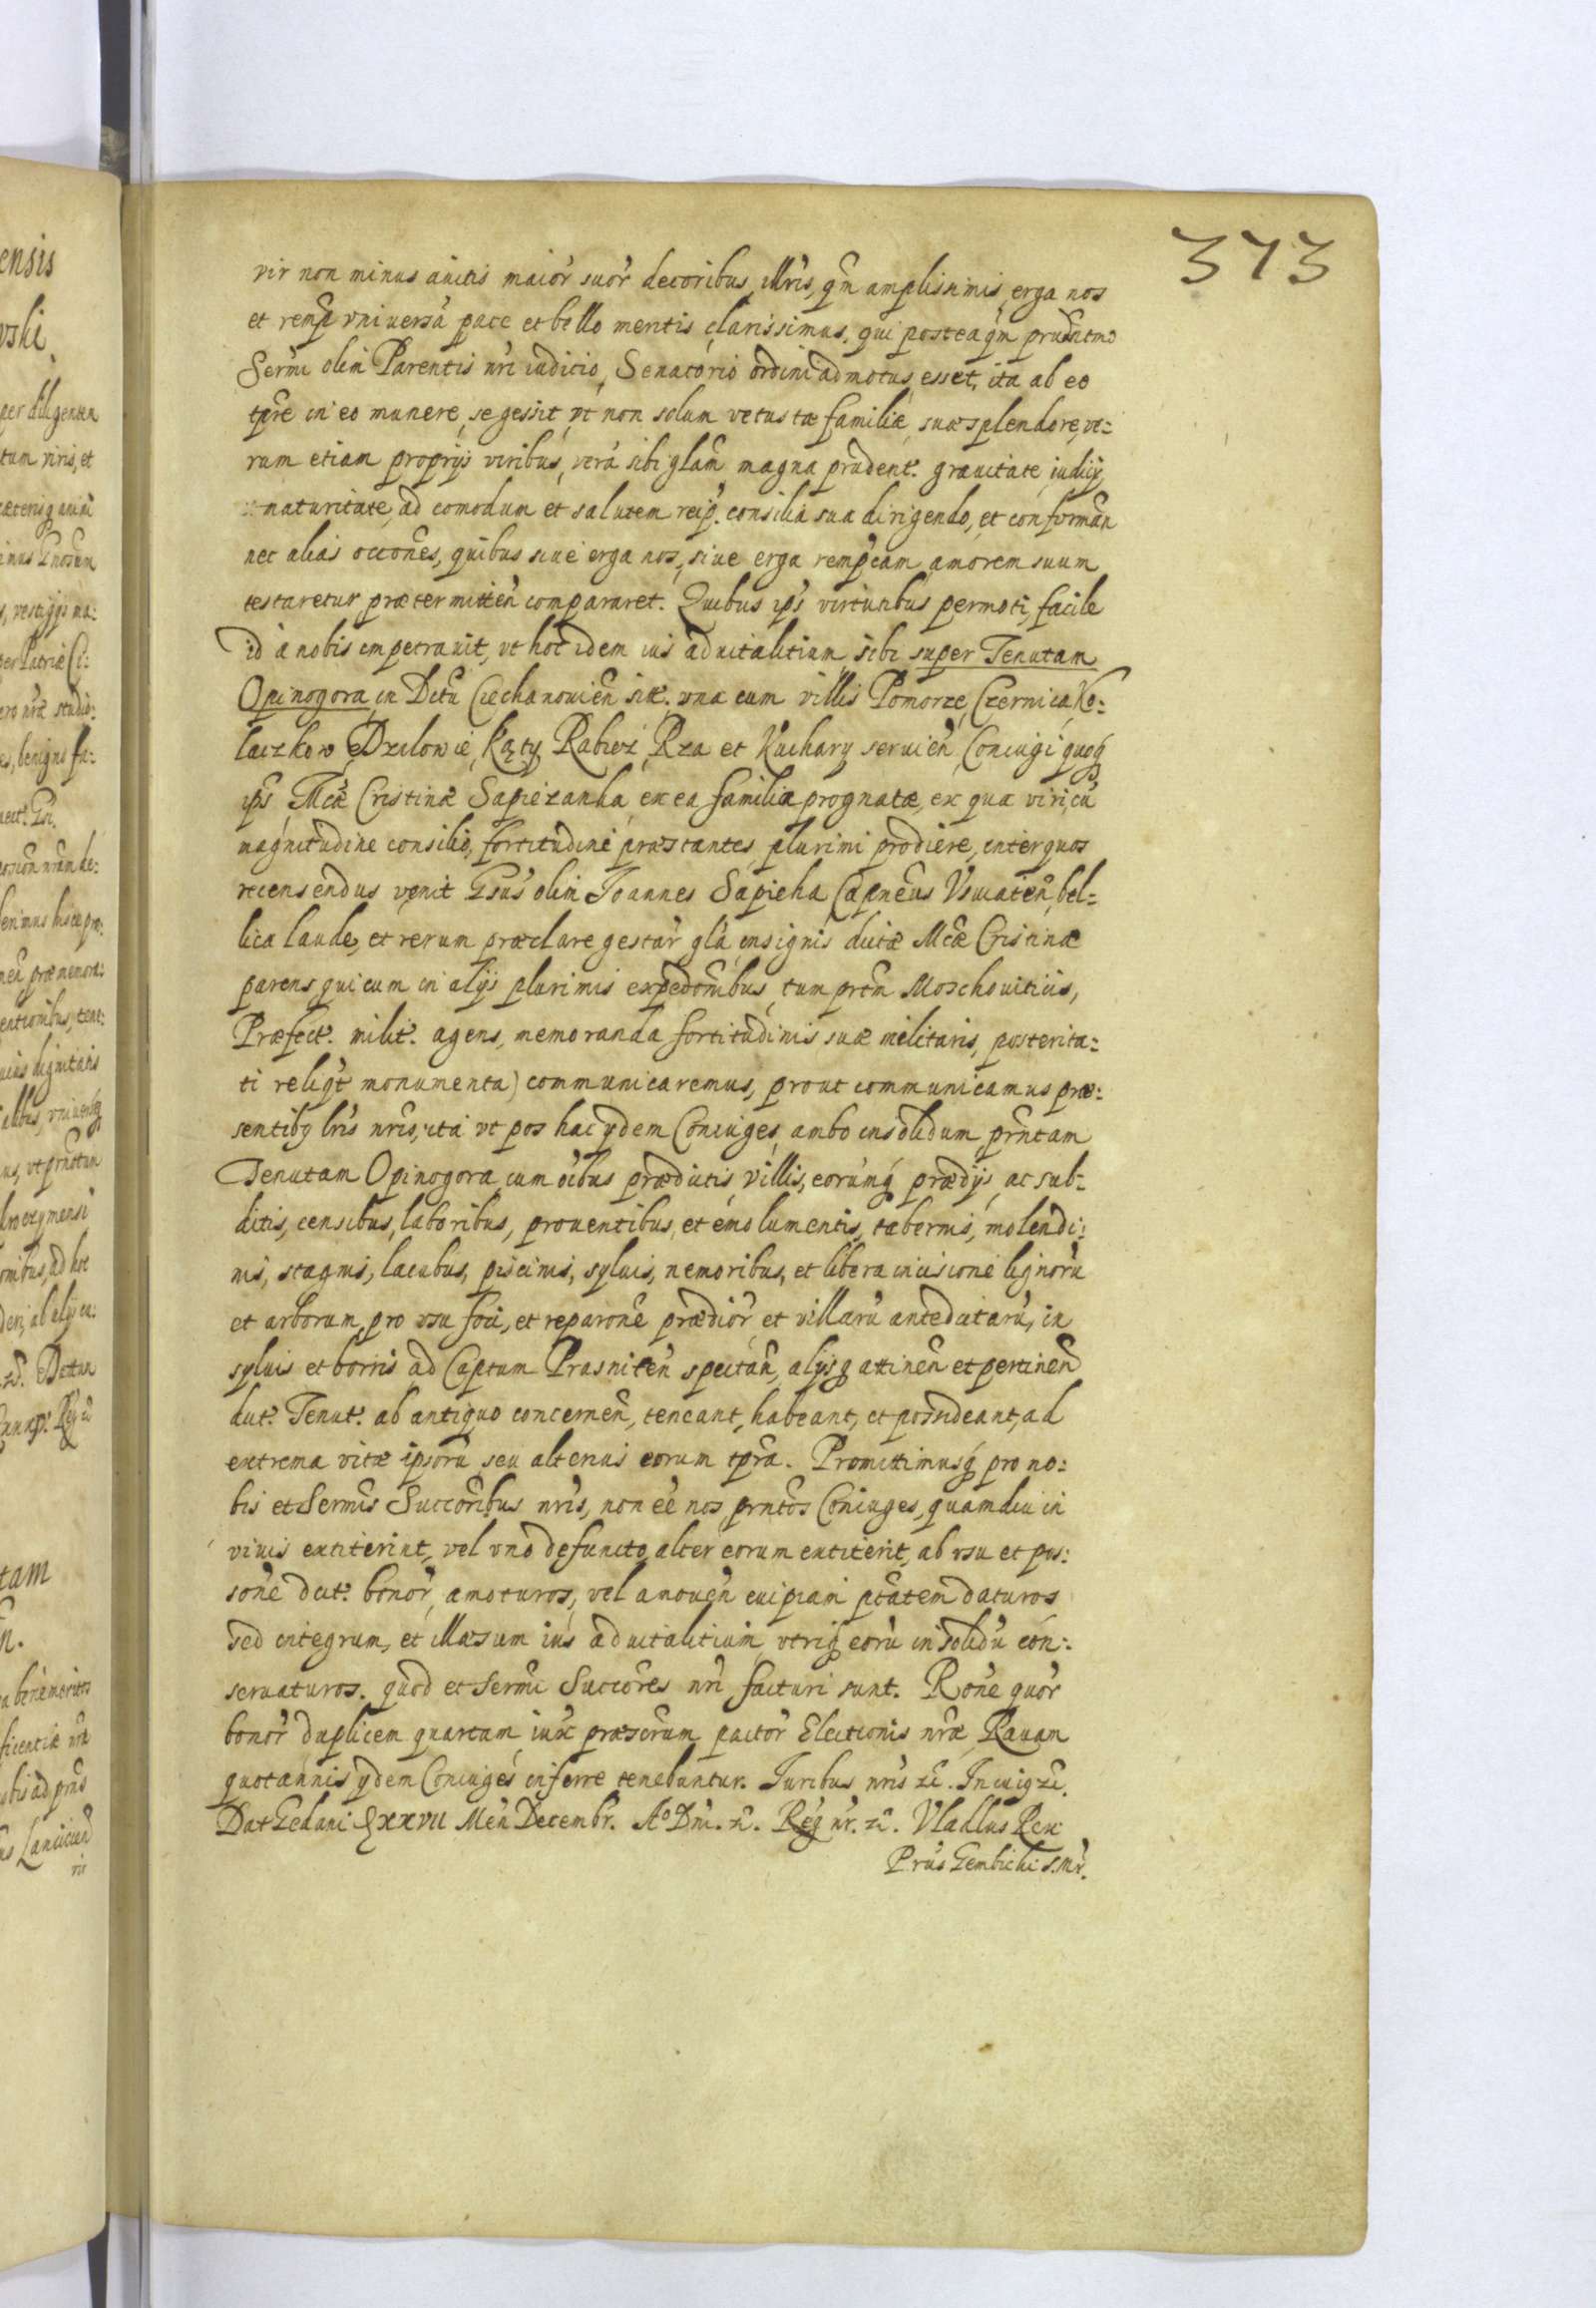 373
vir non minus auitis maior̃ suor̃ decoribus, illris, qm̃ amplissimis, erga nos
et remp̃ vniuersã pace et bello meritis clarissimus, qui posteaqm̃ prudentmo
Sermi olim Parentis nr̃i iuditio, Senatorio ordini admotus esset, ita ab eo
tpr̃e in eo munere se gessit vt non solum vetustæ familiæ suæ splendore, ve:
rum etiam proprijs viribus verã sibi glam̃ magna prudent. grauitate iudicij
maturitate, ad comodum et salutem reip. consilia sua dirigendo, et conformañ
nec alias occones, quibus siue erga nos, siue erga remp̃ eam amorem suum
testaretur prætermitteñ compararet. Quibus ips virtutibus permoti, facile
id a nobis impetrauit, vt hoc idem ius aduitalitium sibi super Tenutam
Opinogora in Dctũ Ciechanouieñ sitæ. vna cum villis Pomorze, Czernica, Ko:
laczkow, Dzilowie, Kąty, Rabiez, Rza et Kuchary seruieñ, Coniugi quoq
ips Mcæ Cristinæ Sapiezanka, ex ea familia prognatæ, ex qua viri, cũ
magnitudine consilio, fortitudine præstantes plurimi prodiere, inter quos
recensendus venit Gsus olim Joannes Sapieha Capneus Vsuiateñ, bel:
lica laude, et rerum præclare gestar̃ glã insignis dictæ Mcæ Cristinæ
parens qui cum in alijs plurimis expedonibus, tum prtm̃ Moschouiticis,
Præfect. milit. agens, memoranda fortitudinis suæ militaris, posterita:
ti religt monumenta) communicaremus, prout communicamus præ:
sentibq lris nris, ita vt pos hac ydem Coniuges ambo insolidum prñtam
Tenutam Opinogora cum oibus prædictis villis, eorumq prædijs ac sub:
ditis, censibus, laboribus, prouentibus, et emolumentis, tabernis, molendi:
nis, stagnis, lacubus, piscinis, syluis, nemoribus, et libera incisione lignorũ
et arborum, pro vsu foci, et reparone prædior̃ et villarũ antedictarũ, in
syluis et borris ad Captum Prasniteñ spectañ, alijsq attineñ et pertineñ
dict. Tenut. ab antiquo concerneñ, teneant, habeant, et possideant, ad
extrema vitæ ipsorũ seu alterius eorum tpra. Promittimusq pro no:
bis et Sermis Succoribus nris, non eẽ nos prntos Coniuges, quamdiu in
viuis extiterint, vel vno defuncto, alter eorum extiterit, ab vsu et pos:
sone dict. bonor̃ amoturos, vel amoueñ cuipiam ptatem daturos
sed integrum, et illæsum ius aduitalitium vtriq eorũ in solidũ con:
seruaturos. quod et Sermi Succores nri facturi sunt. Rone quor̃
bonor̃ duplicem quartam iux præscrum pactor̃ Electionis nræ Rauam
quotannis ydem Coniuges inferre tenebuntur. Juribus nris zc. In cuiq zc.
Dat Gedani xxvii Meñ Decembr. Ao Dni. zc. Reg nr. zc. Vladlus Rex
Prus Gembicki S. Mr.